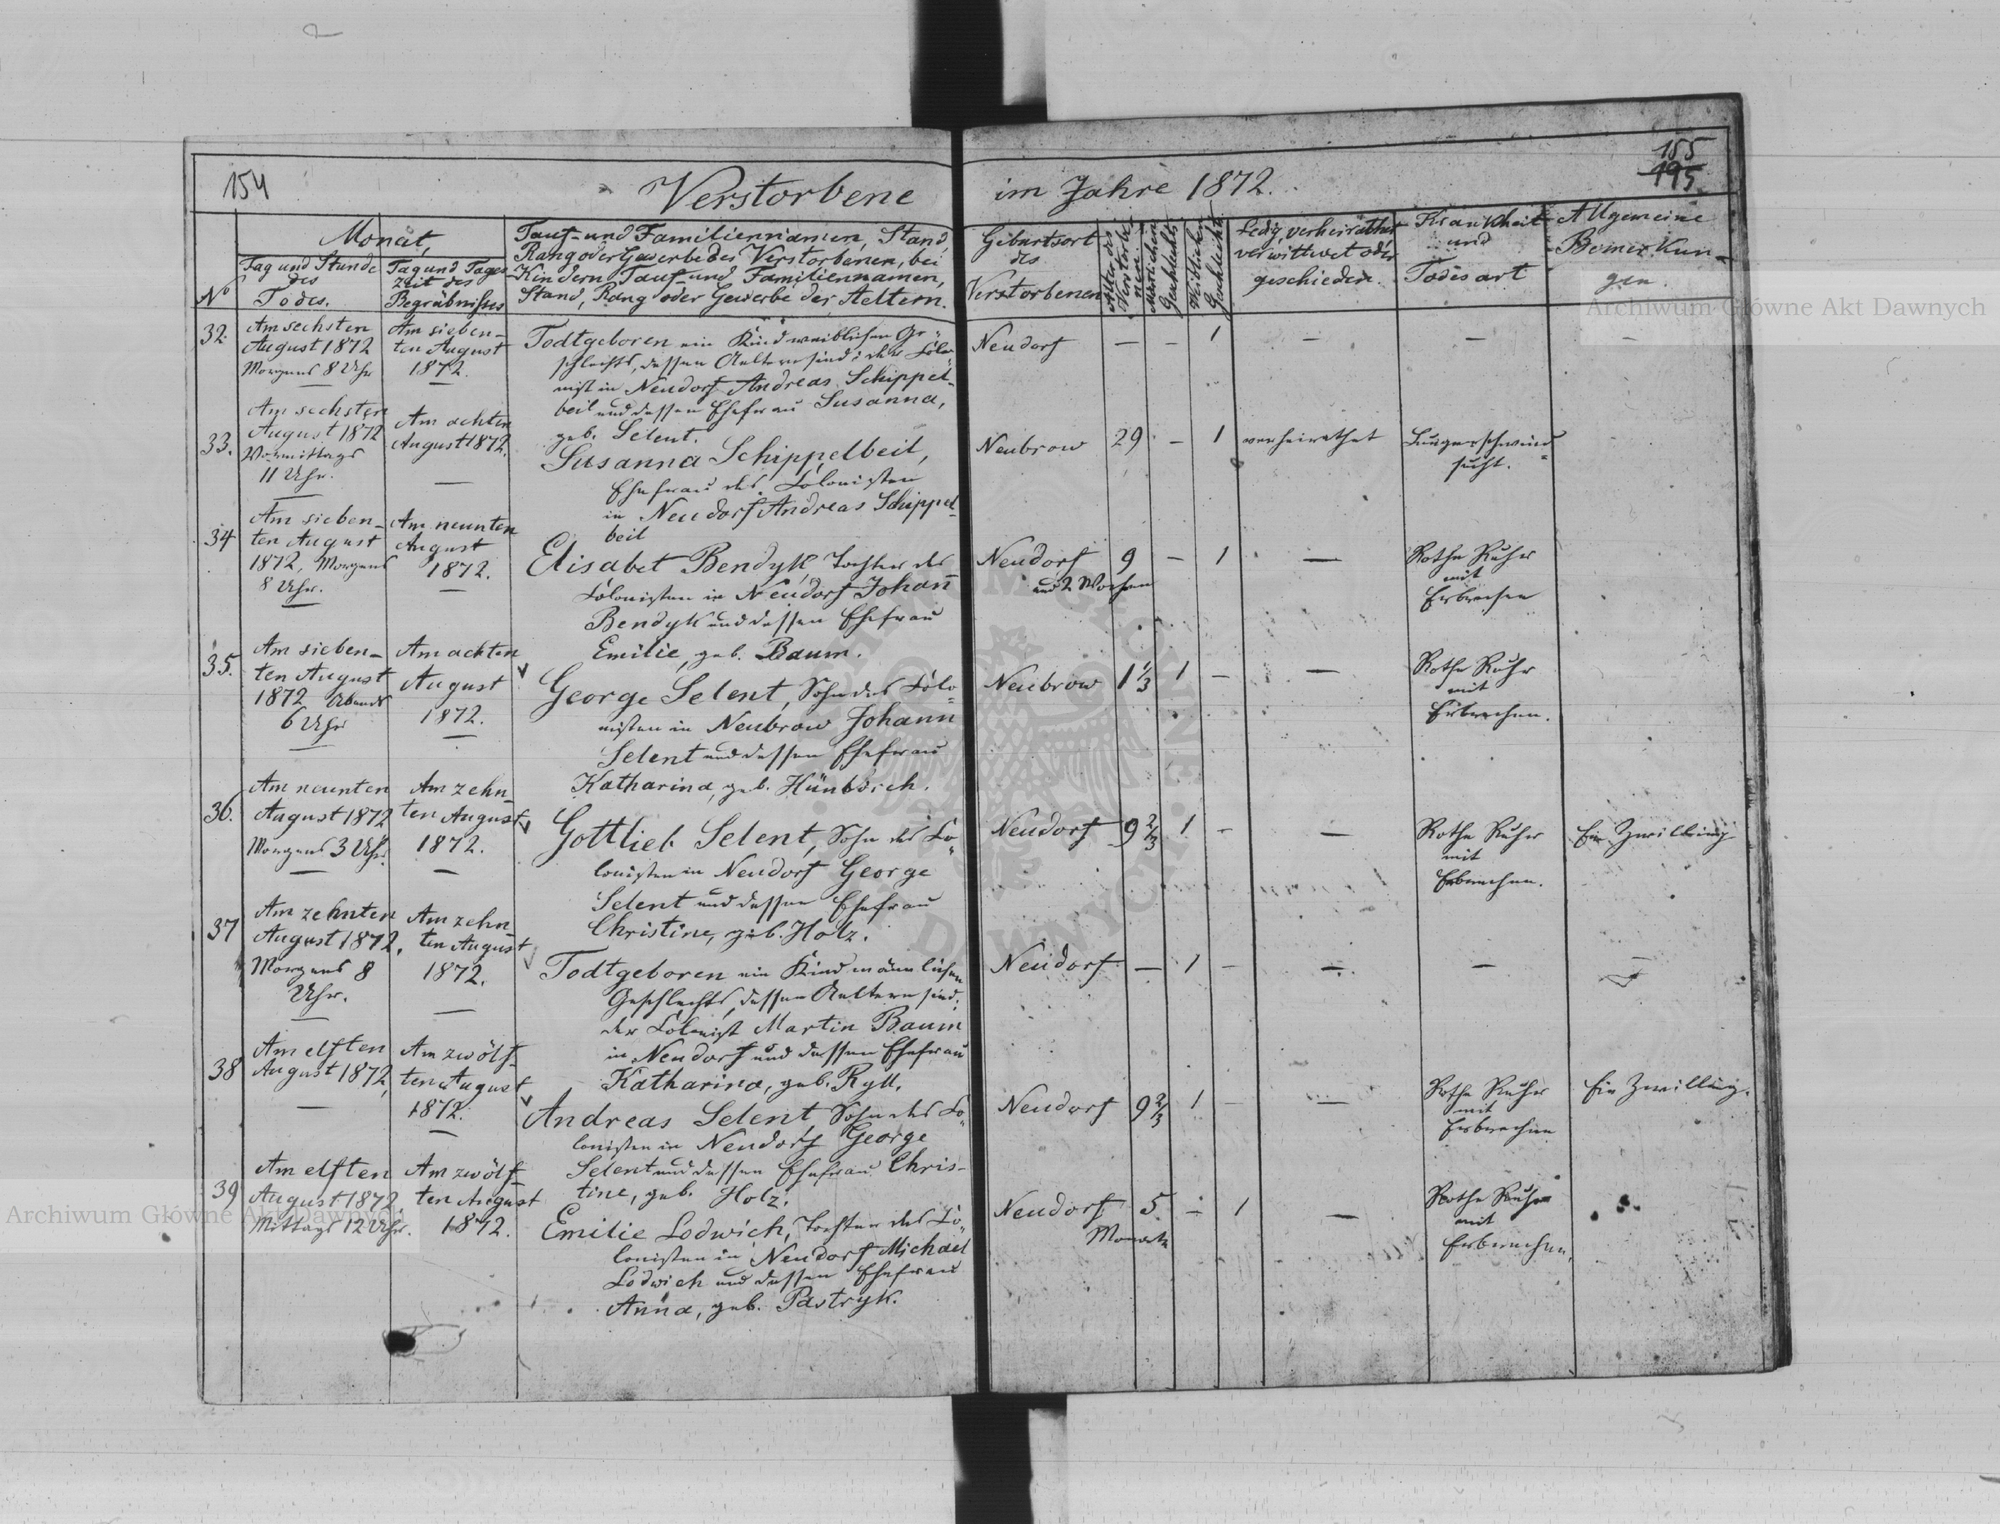 154
Verstorbene
im Jahre 1872.
155
195.
Monat,
N
Tag und Stunde
des
Todes.
Tag und Tages
zeit des
Begräbnisses
Tauf- und Familiennamen, Stand,
Rang oder Gewerbe des Verstorbenen, bei
Kindern Tauf- und Familiennamen,
Stand, Rang oder Gewerbe der Aeltern.
Geburtsort
des
Verstorbenen
Alter des
Verstorbe
nen
Männlichen
Geschlechts
Weiblichen
Geschlechts
Ledig, verheirathet
verwittwet oder
geschieden.
Krankheit
und
Todesart
Allgemeine
Bemerkun-
gen.
32.
Am sechsten
August 1872
Morgens 8 Uhr
Am sieben-
ten August
1872.
Todtgeboren ein Kind weiblichen Ge-
schlechts, dessen Aeltern sind: der Kolo-
nist in Neudorf Andreas Schippel-
beil und dessen Ehefrau Susanna,
geb. Selent.
Neudorf — — 1 — — —
33.
Am sechsten
August 1872
Vormittags
11 Uhr.
Am achten
August 1872.
Susanna Schippelbeil,
Ehefrau des Kolonisten
in Neudorf Andreas Schippel-
beil
Neubrow 29 — 1 verheirathet Lungenschwind-
sucht.
34
Am sieben-
ten August
1872, Morgens
8 Uhr.
Am neunten
August
1872.
Elisabet Bendyk, Tochter des
Kolonisten in Neudorf Johann
Bendyk und dessen Ehefrau
Emilie, geb. Baum.
Neudorf 9 — 1 — Rothe Ruhr
und 2 Wochen
mit
Erbrechen
35.
Am sieben-
ten August
1872 Abends
6 Uhr
Am achten
August
1872.
George Selent, Sohn des Kolo-
nisten in Neubrow Johann
Selent und dessen Ehefrau
Katharina, geb. Hünbsch.
Neubrow 1 1/3 1 — — Rothe Ruhr
mit
Erbrechen.
36.
Am neunten
August 1872
Morgens 3 Uhr.
Am zehn-
ten August
1872.
Gottlieb Selent, Sohn des Ko-
lonisten in Neudorf George
Selent und dessen Ehefrau
Christine, geb. Holz.
Neudorf 9 2/3 1 — — Rothe Ruhr Ein Zwilling
mit
Erbrechen.
37
Am zehnten
August 1872,
Morgens 8
Uhr.
Am zehn
ten August
1872.
Todtgeboren ein Kind männlichen
Geschlechts, dessen Aeltern sind:
der Kolonist Martin Baum
in Neudorf und dessen Ehefrau
Katharina, geb. Ryll.
Neudorf — 1 — — — —
38
Am elften
August 1872,
Am zwölf-
ten August
1872.
Andreas Selent Sohn des Ko-
lonisten in Neudorf George
Selent und dessen Ehefrau Chris-
tine, geb. Holz.
Neudorf 9 2/3 1 — — Rothe Ruhr Ein Zwilling.
mit
Erbrechen
39
Am elften
August 1872,
Mittags 12 Uhr.
Am zwölf-
ten August
1872.
Emilie Lodwich, Tochter des Ko-
lonisten in Neudorf Michael
Lodwich und dessen Ehefrau
Anna, geb. Pastryk.
Neudorf 5 — 1 — Rothe Ruhr
Monate
mit
Erbrechen.
Archiwum Główne Akt Dawnych
Archiwum Główne Akt Dawnych
ARCHIWUM GŁÓWNE AKT DAWNYCH